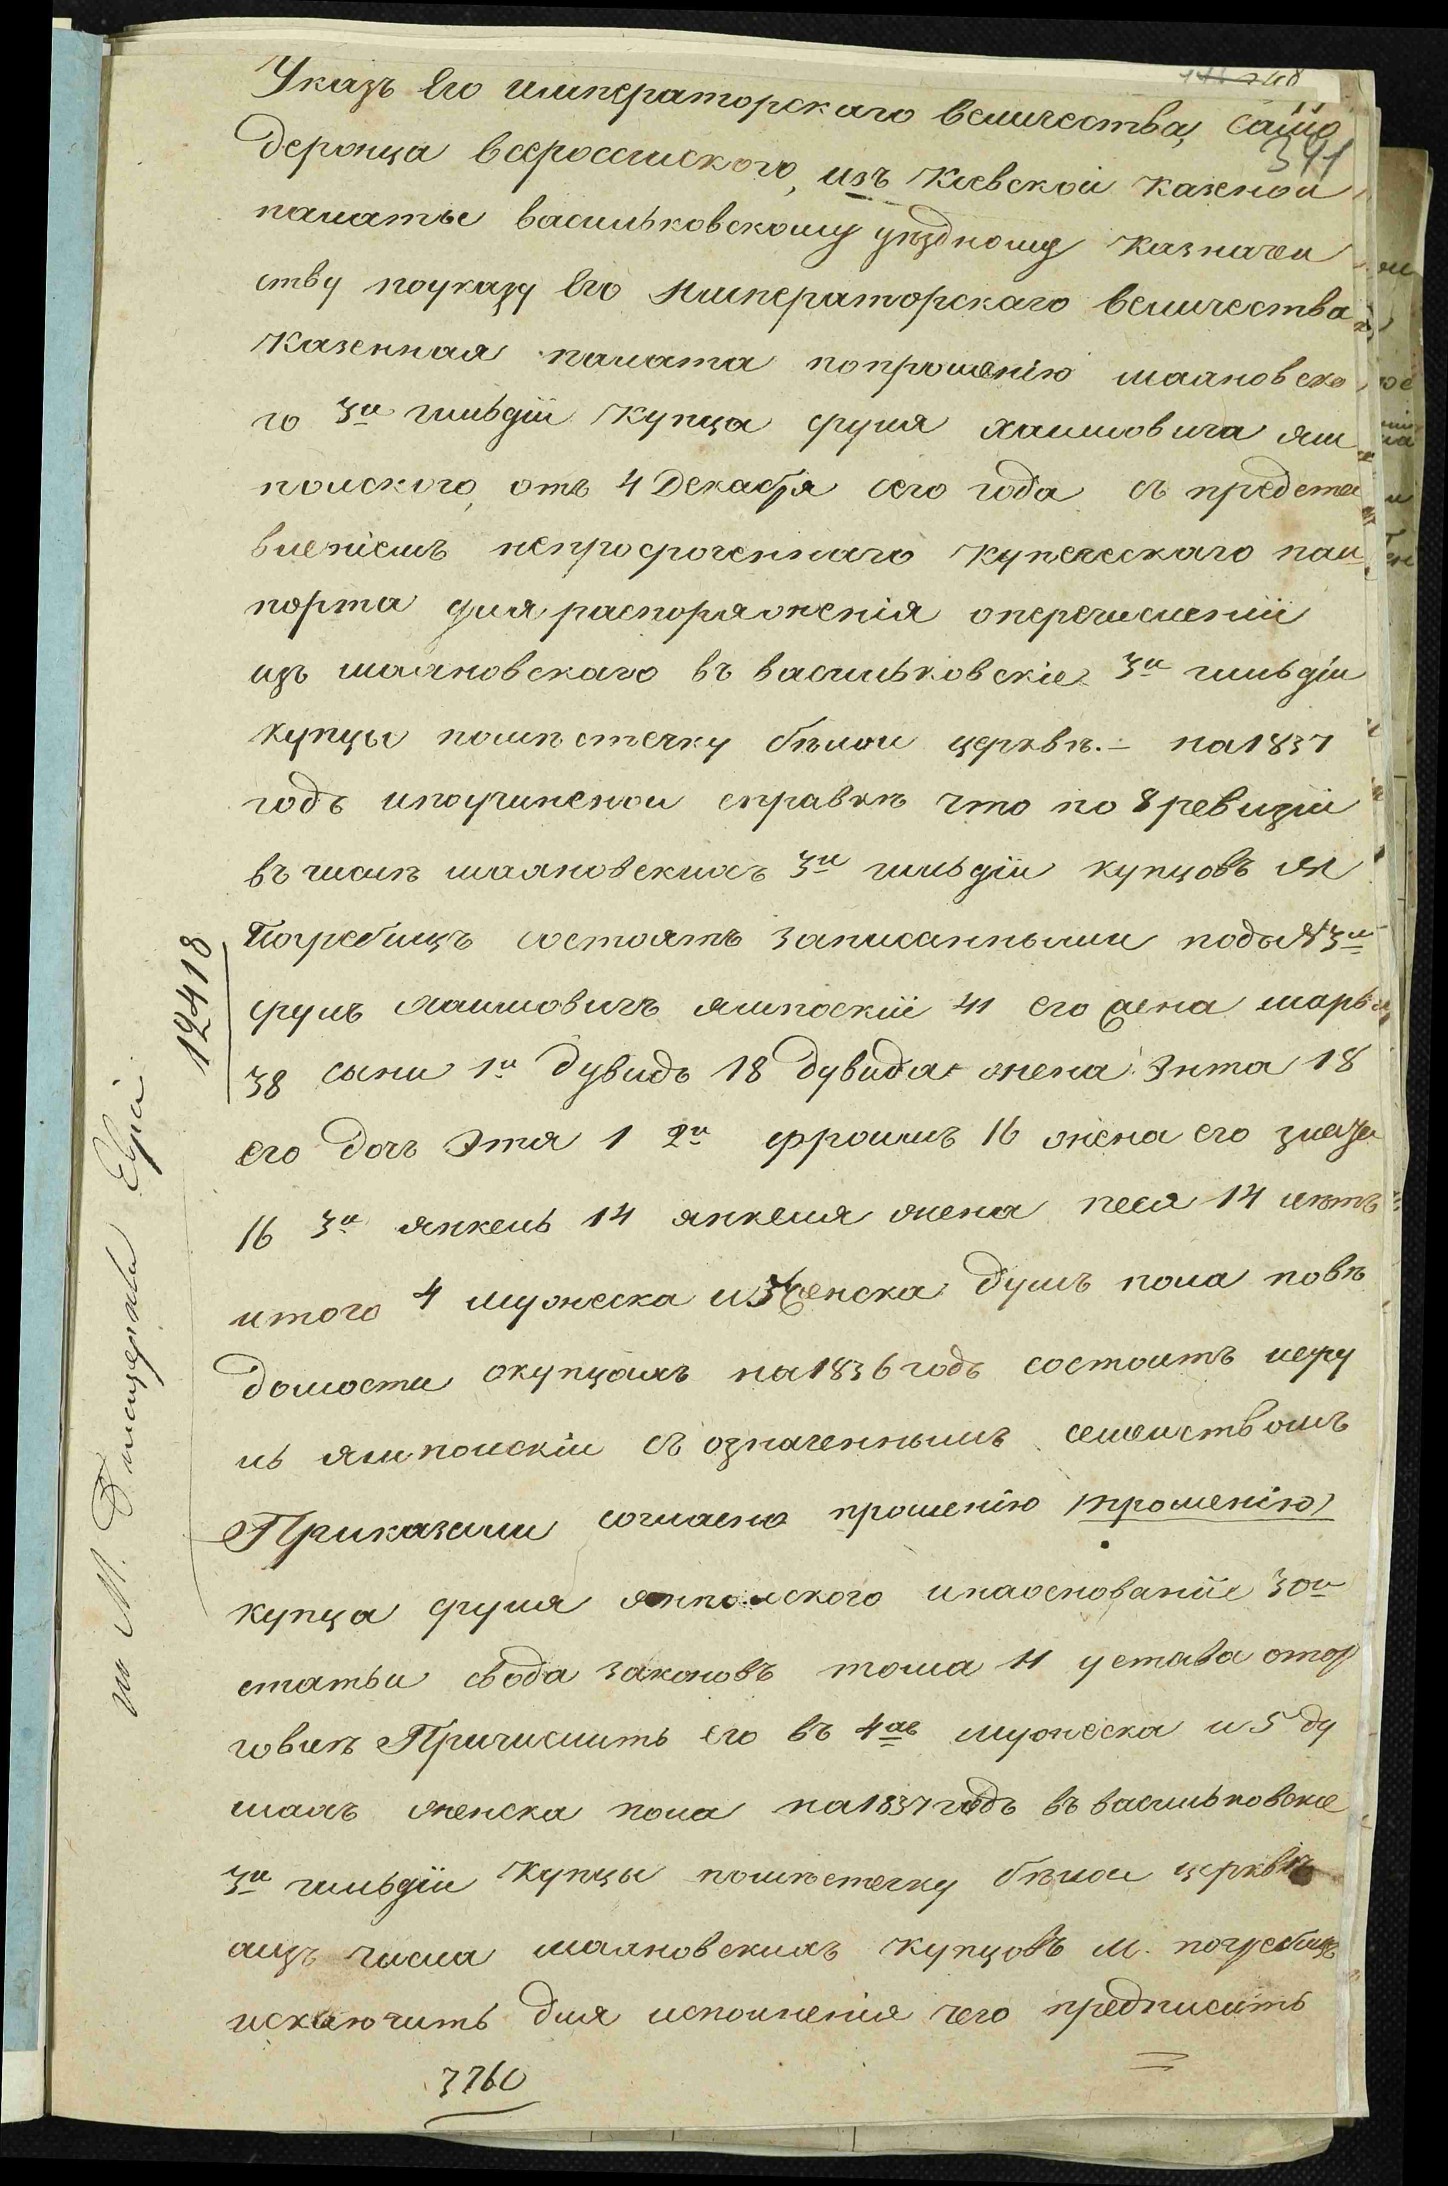 248
391
Указъ Его императорскаго величества, само
держца всероссийского, изъ Киевской казеной
палаты васильковскому уездному казначей
ству поуказу Его Императорскаго величества
казенная палата попрошенію махновско
го 3й гильдіи купца сруля хаимовича ям
польского, отъ 4 Декабря сего года съ предста
вленіемъ непросроченнаго купеческаго паш
порта для распоряженія оперечисленіи
изъ махновскаго въ васильковскіе 3й гильдіи
купцы помѣстечку бѣлой церквѣ. – на 1837
годъ ипоучиненой справкѣ что по 8 ревизіи
въ числѣ махновскихъ 3й гильдіи купцовъ м
Погребищъ состоятъ записанными подъ № 3м
сруль хаимовичъ ямпоскій 41 его жена марья
38 сыни 1й дувидъ 18 дувида жена Энта 18
его дочь Этя 1 2й фроимъ 16 жена его злата
16 3й янкель 14 янкеля жена песя 14 лѣтъ
итого 4 мужеска и 5 женска душъ пола повѣ
домости окупцахъ на 1836 годъ состоитъ исру
ль ямпольскій съ означеннымъ семействомъ
Приказали согласно прошенію /прошенію/
купца сруля ямпольского инаоснованіи 30й
статьи свода законовъ тома 11 устава отор
говлѣ Причислить его въ 4хъ мужеска и 5 ду
шахъ женска пола на 1837 годъ въ васильковские
3й гильдіи купцы помѣстечку бѣлой церквѣ
аизъ числа махновскихъ купцовъ м. погребищъ
исключить для исполненія чего предписать
3760
12418
М. Евреи